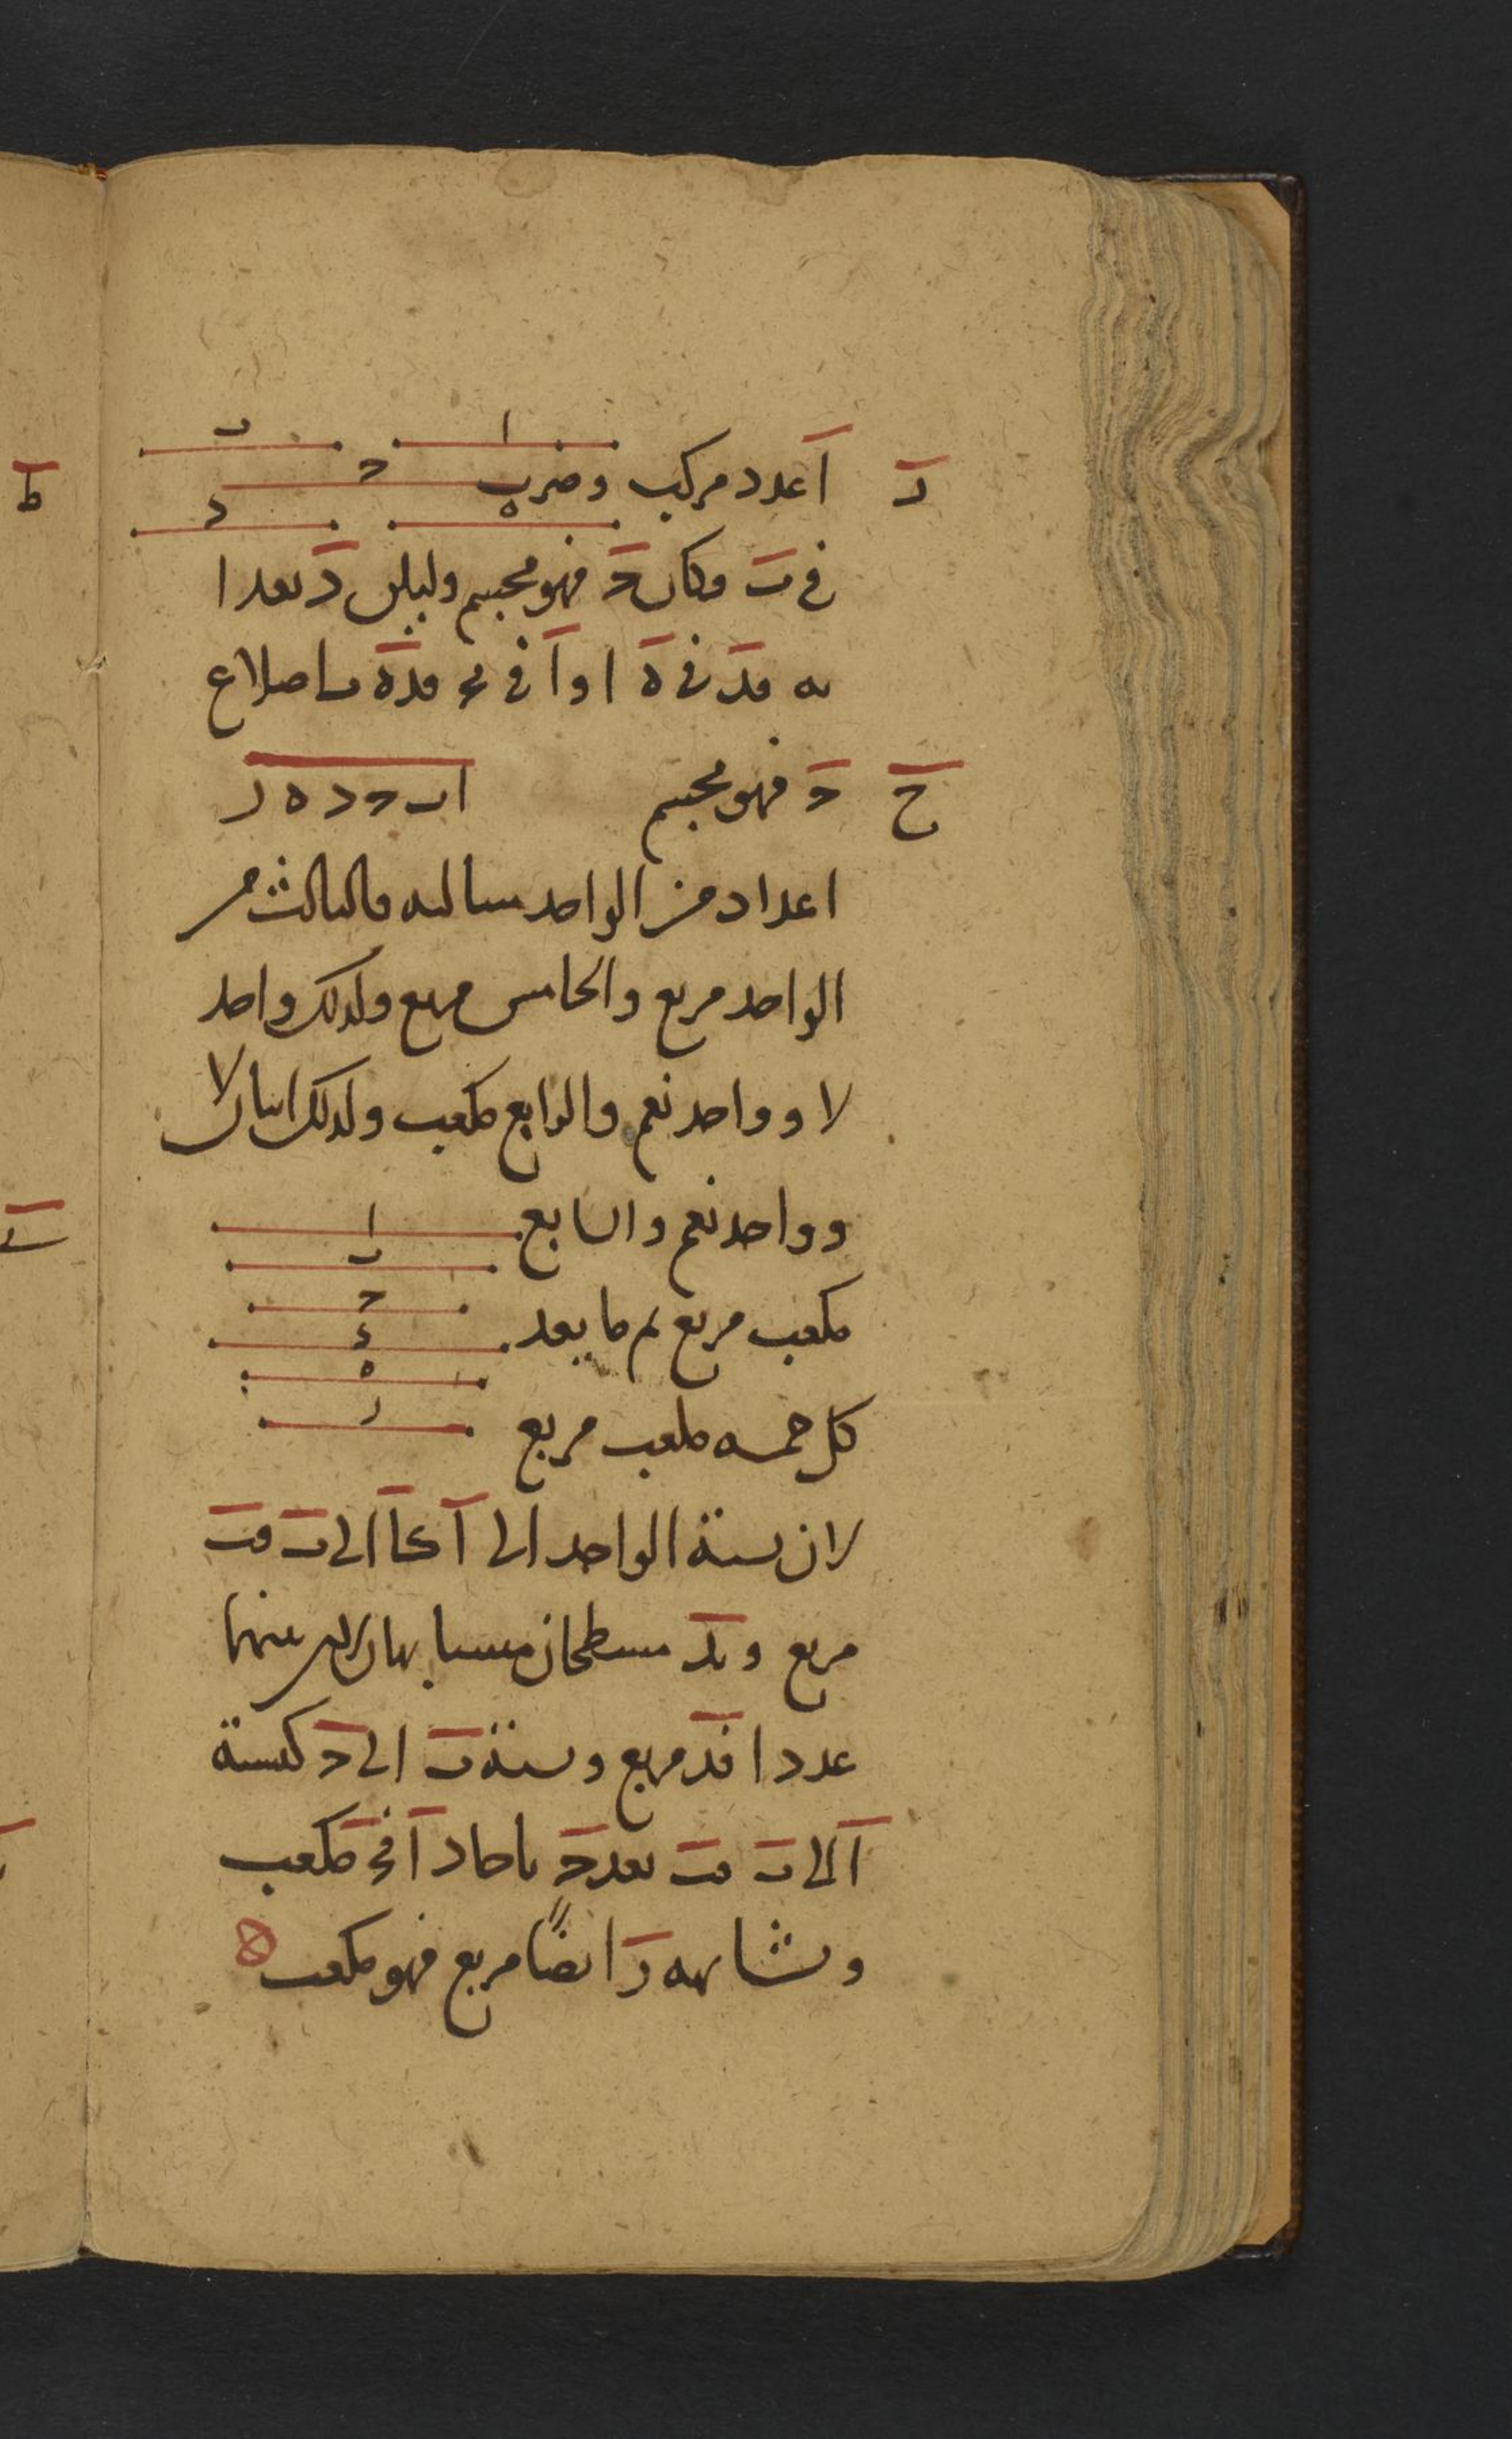 ا ب
ز ا عدد مركب وضرب ح
ه د
في ب فكان ح فهو مجسم وليكن د يعد ا
به فد في ه ا و ا في ب ح فده ب اضلاع
ح ح فهو مجسم ا ب ح د ه ز
اعداد من الواحد متتالية فالثالث من
الواحد مربع والخامس مربع وكذلك واحد
لا وواحد نعم والرابع مكعب وكذلك اثنان لا
وواحد نعم والسابع ا
ب
مكعب مربع ثم ما بعد ح
د
ه
كل خمسة مكعب مربع ز
لان نسبة الواحد الى ا كا الى ب فب
مربع و ب د مسطحان متشابهان لان بينهما
عددا فد مربع ونسبة ب الى ح كنسبة
ا الى ب فب يعد ح باحاد ا فح مكعب
وبمثابهه ز ايضا مربع فهو مكعب ه
ط